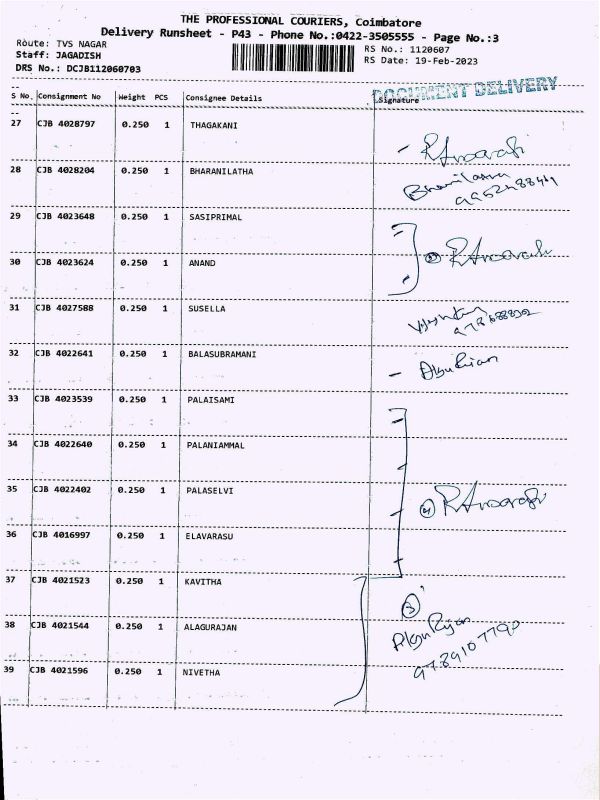 THE PROFESSIONAL COURIERS, Coimbatore
Delivery Runsheet - P43 - Phone No.:0422-3505555 - Page No.:3
Route: TVS NAGAR
RS No.: 1120607
Staff: JAGADISH
RS Date: 19-Feb-2023
DRS No.: DCJB112060703
DOCUMENT DELIVERY
S No. Consignment No Weight PCS Consignee Details Signature
27 CJB 4028797 0.250 1 THAGAKANI
28 CJB 4028204 0.250 1 BHARANILATHA
29 CJB 4023648 0.250 1 SASIPRIMAL
30 CJB 4023624 0.250 1 ANAND
31 CJB 4027588 0.250 1 SUSELLA
32 CJB 4022641 0.250 1 BALASUBRAMANI
33 CJB 4023539 0.250 1 PALAISAMI
34 CJB 4022640 0.250 1 PALANIAMMAL
35 CJB 4022402 0.250 1 PALASELVI
36 CJB 4016997 0.250 1 ELAVARASU
4
37 CJB 4021523 0.250 1 KAVITHA
3
38 CJB 4021544 0.250 1 ALAGURAJAN
9789107790
39 CJB 4021596 0.250 1 NIVETHA